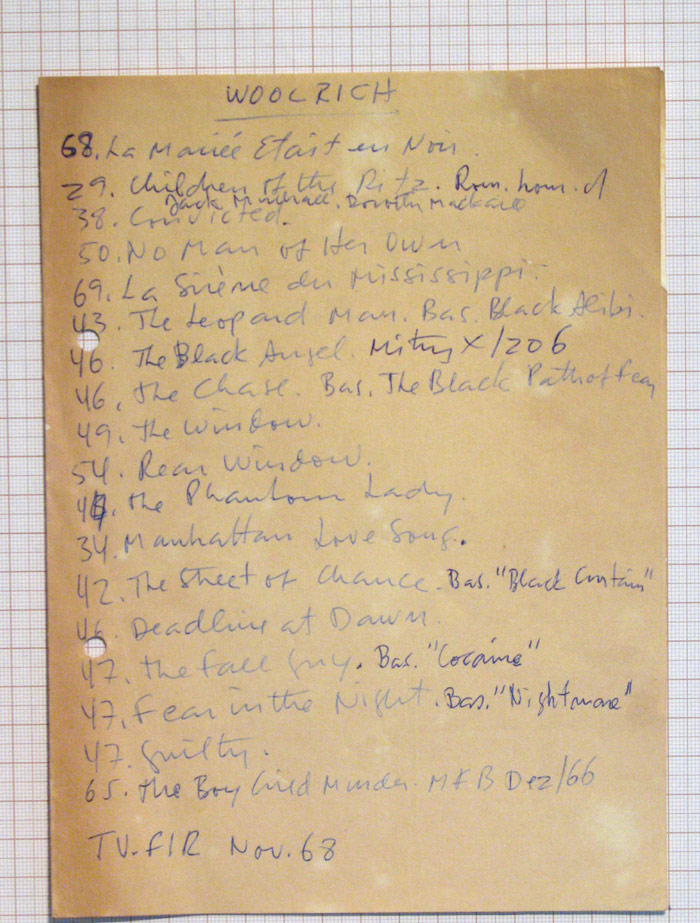 WOOLRICH
68. La Mariée Etait en Noir.
29. Children of the Ritz. Rom. hom. d
Jack Mulhall. Dorothy Mackaill
38. Convicted.
50. No Man of Her Own
69. La Sirène du Mississippi.
43. The Leopard Man. Bas. Black Alibi.
46. The Black Angel. Mitry X/206
46. The Chase. Bas. The Black Path of Fear
49. The Window.
54. Rear Window.
44. The Phantom Lady.
34. Manhattan Love Song.
42. The Street of Chance. Bas. "Black Curtain"
46. Deadline at Dawn.
47. The Fall Guy. Bas. "Cocaine"
47. Fear in the Night. Bas. "Nightmare"
47. Guilty.
65. The Boy Cried Murder. MFB Dez/66
TV. FIR Nov. 68